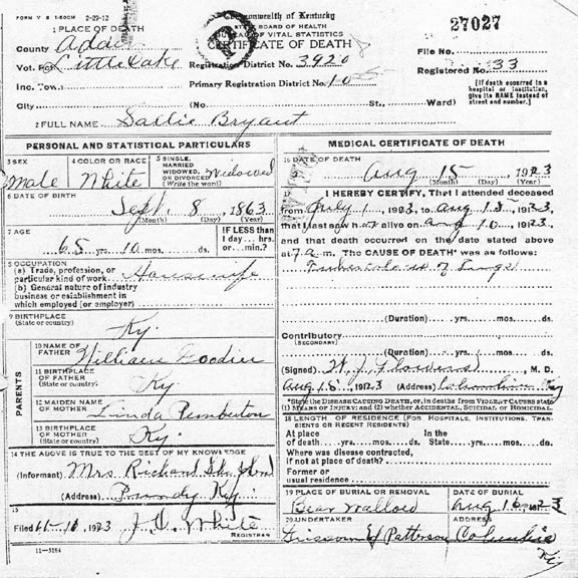 FORM V S 1-50CM 2-29-12
Commonwealth of Kentucky
27027
1 PLACE OF DEATH
STATE BOARD OF HEALTH
BUREAU OF VITAL STATISTICS
County Adair
CERTIFICATE OF DEATH
File No.
Vot. Pct. Little Cake Registration District No. 3920
Registered No. 33
Inc. Town Primary Registration District No.
[If death occurred in a hospital or institution, give its NAME instead of street and number.]
City (No. St., Ward)
2 FULL NAME Sallie Bryant
PERSONAL AND STATISTICAL PARTICULARS
3 SEX Male
4 COLOR OR RACE White
5 SINGLE, MARRIED WIDOWED, OR DIVORCED (Write the word) Widowed
6 DATE OF BIRTH
Sept. 8, 1863
(Month) (Day) (Year)
7 AGE
65 yrs. 10 mos. ds.
IF LESS than 1 day... hrs. or... min.?
8 OCCUPATION
(a) Trade, profession, or particular kind of work Housewife
(b) General nature of industry business or establishment in which employed (or employer)
9 BIRTHPLACE
(State or country) Ky.
PARENTS
10 NAME OF FATHER William Goodin
11 BIRTHPLACE OF FATHER (State or country) Ky
12 MAIDEN NAME OF MOTHER Linda Pemberton
13 BIRTHPLACE OF MOTHER (State or country) Ky.
14 THE ABOVE IS TRUE TO THE BEST OF MY KNOWLEDGE
(Informant) Mrs Richard
(Address) Ky.
15
Filed 1923 J. White
REGISTRAR
11-3184
MEDICAL CERTIFICATE OF DEATH
16 DATE OF DEATH
Aug 15, 1923
(Month) (Day) (Year)
17 I HEREBY CERTIFY, That I attended deceased
from July 1, 1923, to Aug 15, 1923,
that I last saw h alive on Aug 10, 1923,
and that death occurred on the date stated above
at 7 a. m. The CAUSE OF DEATH* was as follows:
Tuberculosis of Lungs
(Duration) yrs. mos. ds.
Contributory
(SECONDARY)
(Duration) yrs. mos. ds.
(Signed) W. J. Flowers, M. D.
Aug 18, 1923 (Address) Columbia Ky
*State the DISEASE CAUSING DEATH, or, in deaths from VIOLENT CAUSES state (1) MEANS OF INJURY; and (2) whether ACCIDENTAL, SUICIDAL, or HOMICIDAL.
18 LENGTH OF RESIDENCE (FOR HOSPITALS, INSTITUTIONS, TRANSIENTS OR RECENT RESIDENTS)
At place of death yrs. mos. ds. In the State yrs. mos. ds.
Where was disease contracted, if not at place of death?
Former or usual residence
19 PLACE OF BURIAL OR REMOVAL
Bear Wallow
DATE OF BURIAL
Aug 16, 1923
20 UNDERTAKER
Patterson
ADDRESS
Columbia Ky